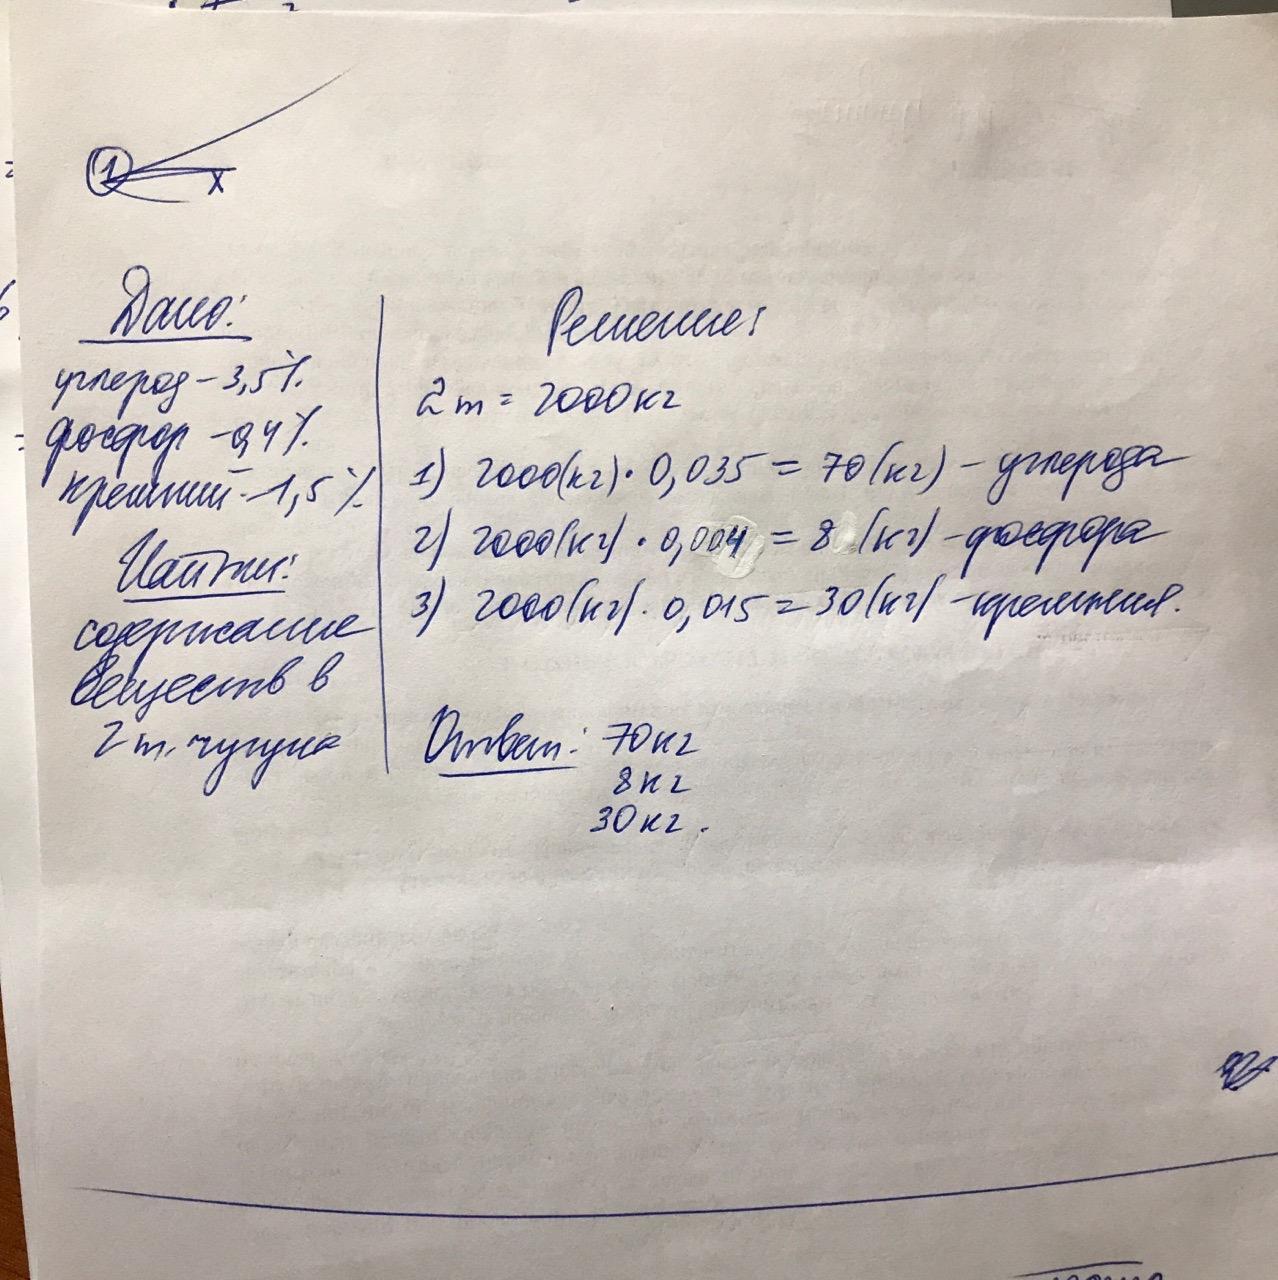 1
x
Дано:
углерод - 3,5%
фосфор - 0,4%
кремний - 1,5%
Найти:
содержание
веществ в
2 т. чугуна
Решение:
2 т = 2000 кг
1) 2000(кг) · 0,035 = 70 (кг) - углерода
2) 2000(кг) · 0,004 = 8 (кг) - фосфора
3) 2000(кг) · 0,015 = 30 (кг) - кремния.
Ответ: 70 кг
8 кг
30 кг.